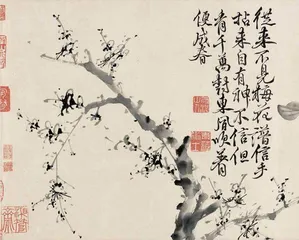 從来不見梅花譜信手
拈来自有神不信但
看千萬樹東風吹著
便成春